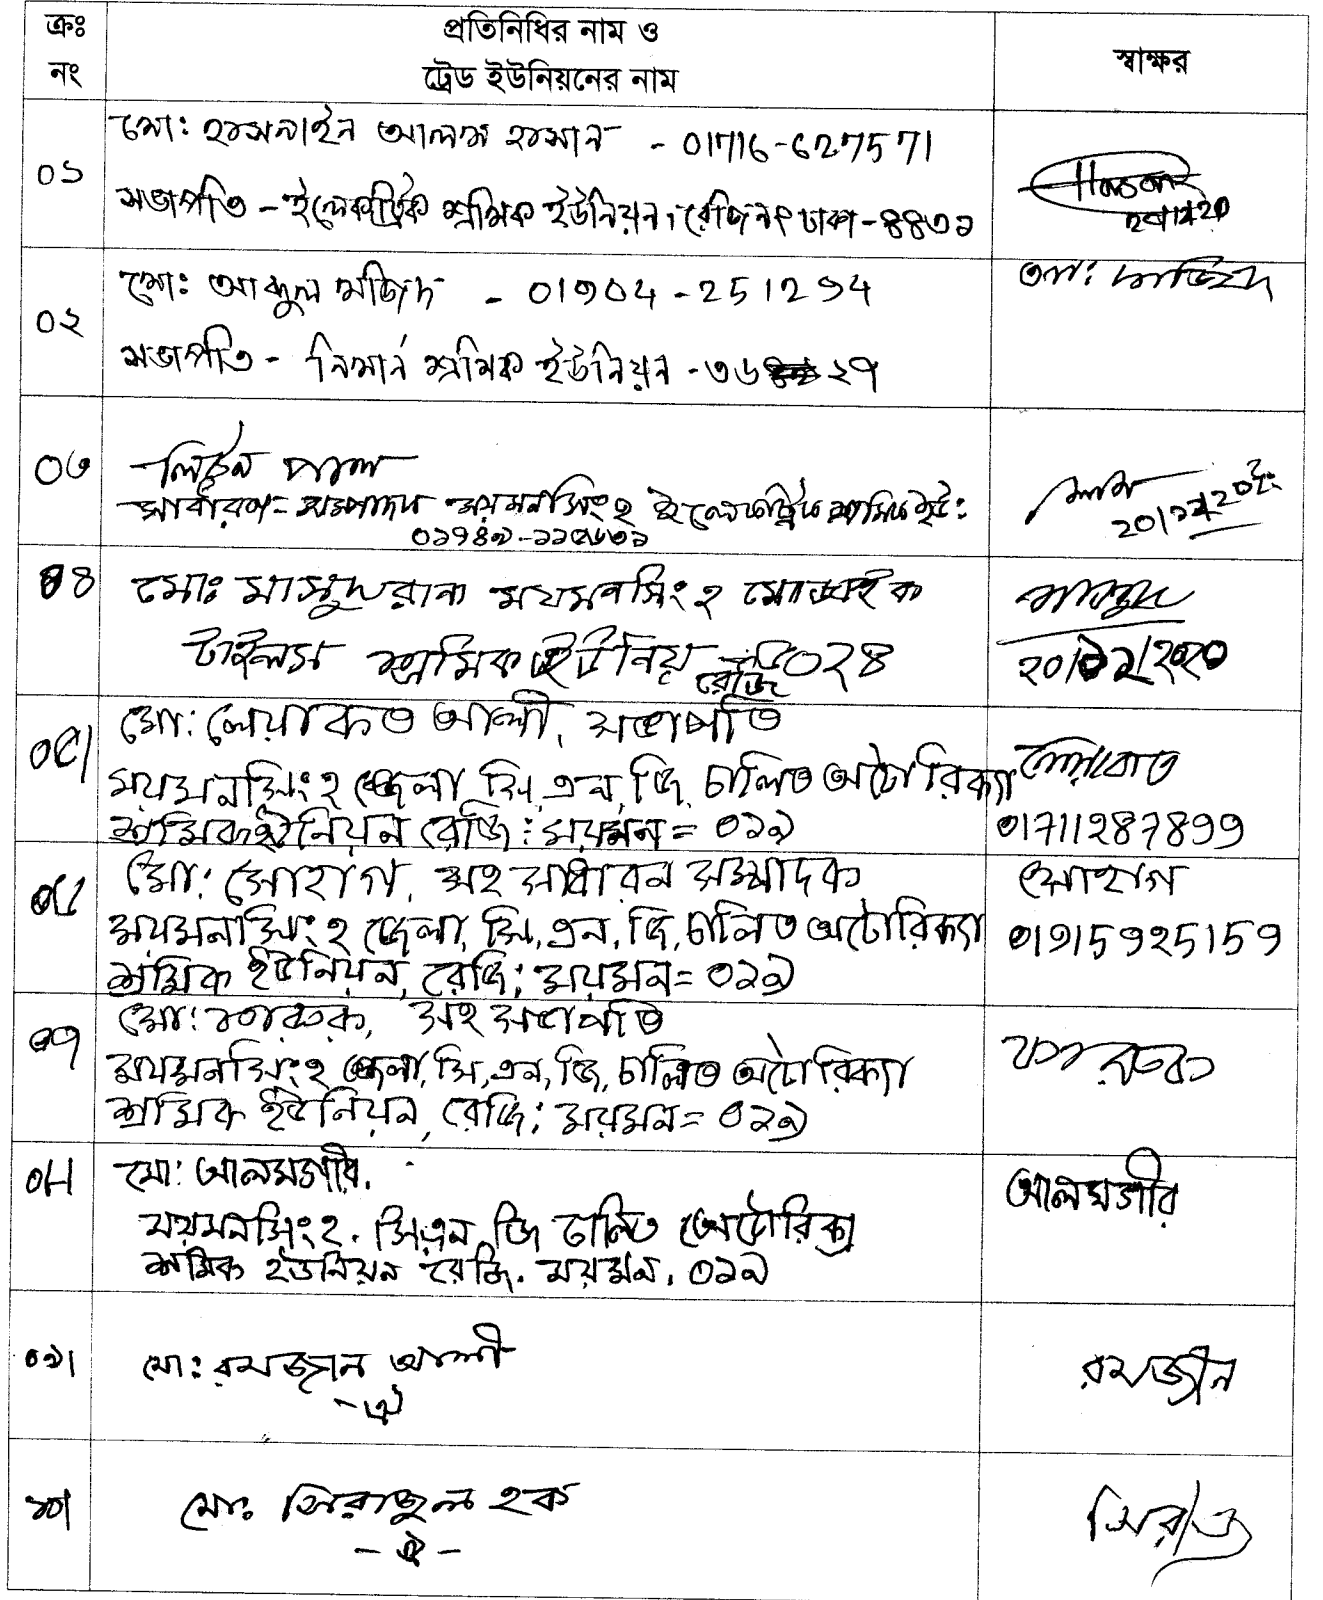 ক্রঃ নং
প্রতিনিধির নাম ও
ট্রেড ইউনিয়নের নাম
স্বাক্ষর
০১
মো: হাসনাইন আলম হাসান - 01716-627571
সভাপতি - ইলেকট্রিক শ্রমিক ইউনিয়ন, রেজিনং ঢাকা - ৪৪৩১
Hasan
০২
মো: আব্দুল মজিদ - 01904-251294
সভাপতি - নির্মান শ্রমিক ইউনিয়ন - ৩৬২৭
মজিদ
০৩
লিটন পাল
সাধারণ - সম্পাদক ময়মনসিংহ ইলেকট্রিক শ্রমিক ইউ:
০৪
মোঃ মাসুদ রানা ময়মনসিংহ মোজাইক
টাইলস শ্রমিক ইউনিয়ন রেজি ০২৪
মাসুদ
০৫।
মো: লেয়াকত আলী, সভাপতি
ময়মনসিংহ জেলা সি, এন, জি, চালিত অটোরিক্সা
শ্রমিক ইউনিয়ন রেজি: ময়মন = ০১৯
লেয়াকত
01711287899
০৬
মো: সোহাগ, সহ সাধারন সম্পাদক
ময়মনসিংহ জেলা, সি, এন, জি, চালিত অটোরিক্সা
শ্রমিক ইউনিয়ন, রেজি: ময়মন = ০১৯
সোহাগ
01915925159
০৭
মো: ফারুক, সহ সভাপতি
ময়মনসিংহ জেলা, সি, এন, জি, চালিত অটোরিক্সা
শ্রমিক ইউনিয়ন, রেজি: ময়মন = ০১৯
ফারুক
০৮
মো: আলমগীর.
ময়মনসিংহ. সি এন, জি চালিত অটোরিক্সা
শ্রমিক ইউনিয়ন রেজি. ময়মন, ০১৯
আলমগীর
০৯।
মো: রমজান আলী
- ঐ
রমজান
১০।
মো: সিরাজুল হক
- ঐ -
সিরাজ